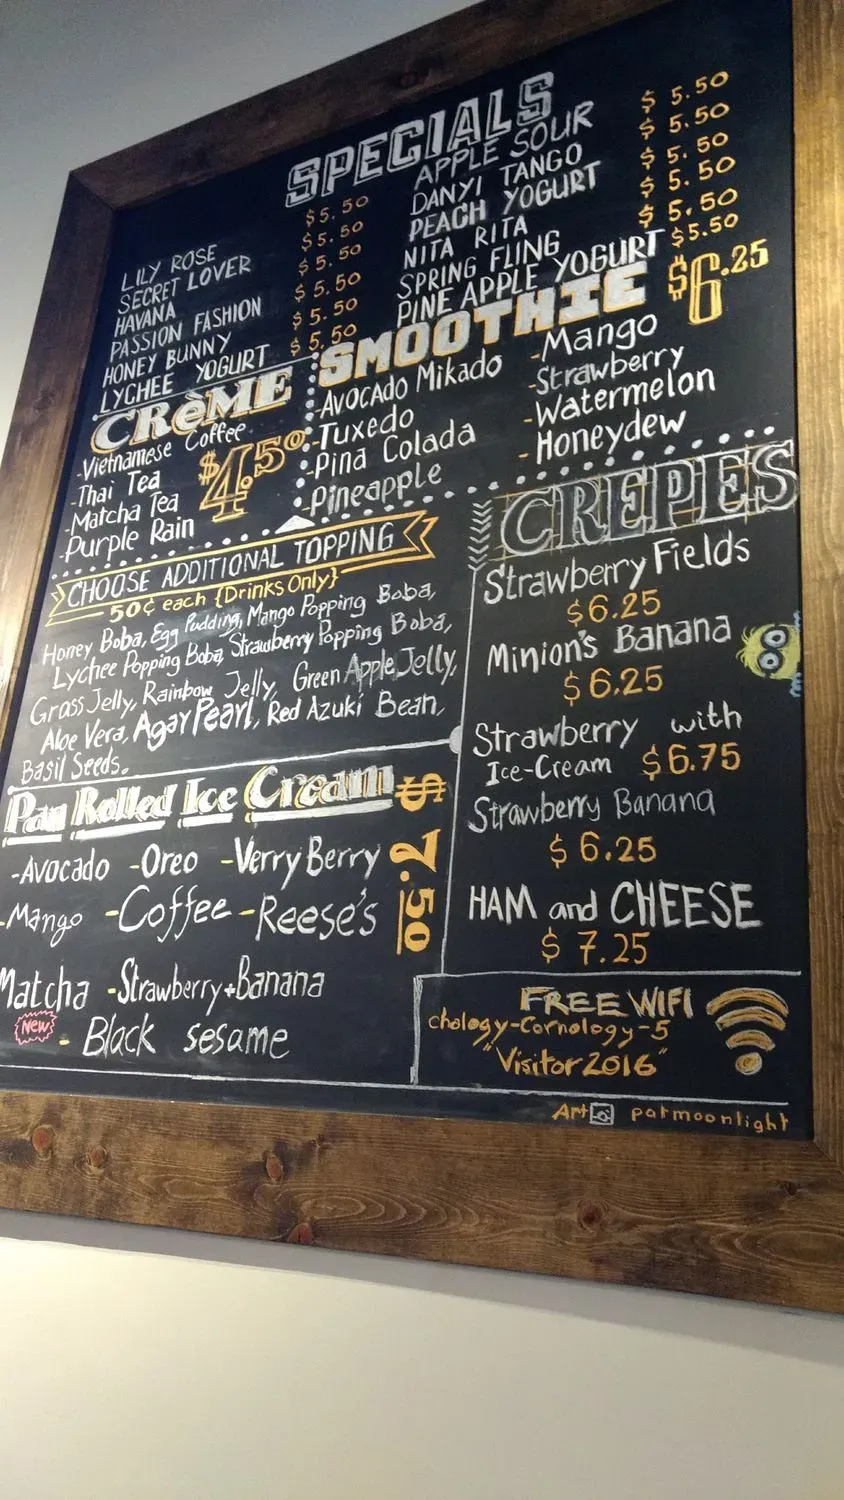 SPECIALS
LILY ROSE $5.50
SECRET LOVER $5.50
HAVANA $5.50
PASSION FASHION $5.50
HONEY BUNNY $5.50
LYCHEE YOGURT $5.50
APPLE SOUR $5.50
DANYI TANGO $5.50
PEACH YOGURT $5.50
NITA RITA $5.50
SPRING FLING $5.50
PINE APPLE YOGURT $5.50
CRèME
-Vietnamese Coffee
-Thai Tea
-Matcha Tea
-Purple Rain
$4.50
SMOOTHIE $6.25
-Avocado Mikado
-Tuxedo
-Pina Colada
-Pineapple
-Mango
-Strawberry
-Watermelon
-Honeydew
CHOOSE ADDITIONAL TOPPING
50¢ each {Drinks Only}
Honey Boba, Egg Pudding, Mango Popping Boba,
Lychee Popping Boba, Strawberry Popping Boba,
Grass Jelly, Rainbow Jelly, Green Apple Jelly,
Aloe Vera, Agar Pearl, Red Azuki Bean,
Basil Seeds.
CREPES
Strawberry Fields
$6.25
Minion's Banana
$6.25
Strawberry with
Ice-Cream $6.75
Strawberry Banana
$6.25
HAM and CHEESE
$7.25
Pan Rolled Ice Cream $7.50
-Avocado -Oreo -Verry Berry
-Mango -Coffee -Reese's
Matcha -Strawberry+Banana
New - Black sesame
FREE WIFI
chology-Cornology-5
"Visitor2016"
Art patmoonlight